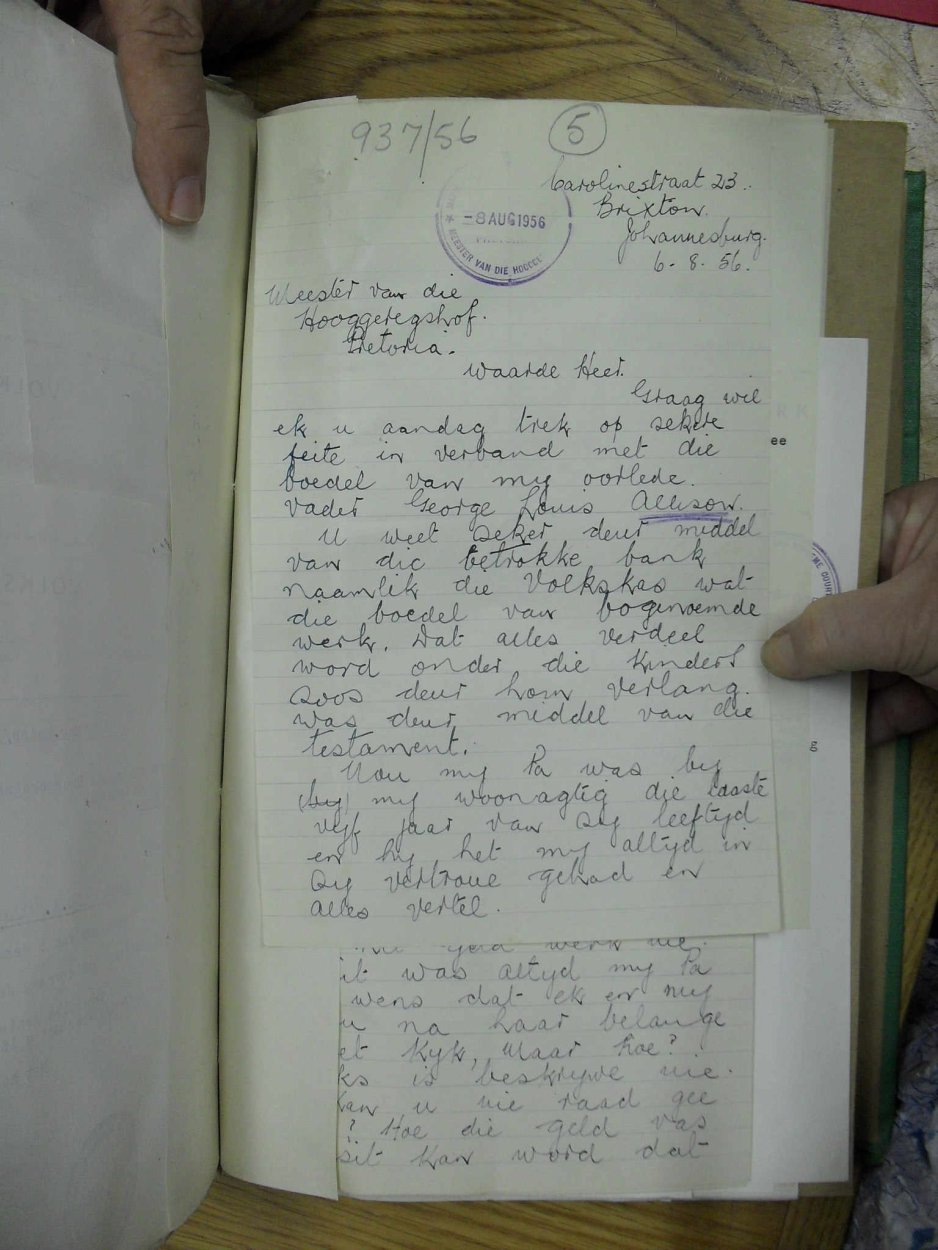 937/56 5
Carolinestraat 23.
Brixton.
Johannesburg.
6-8-56.
-8 AUG 1956
MEESTER VAN DIE HOOGGE
Meester van die
Hooggeregshof.
Pretoria.
Waarde Heer.
Graag wil
ek u aandag trek op sekere
feite in verband met die
boedel van my oorlede.
vader George Louis Allison.
U weet seker deur middel
van die betrokke bank
naamlik die Volkskas wat
die boedel van bogenoemde
werk. Dat alles verdeel
word onder die kinders
soos deur hom verlang.
was deur middel van die
testament.
Nou my Pa was by
(by) my woonagtig die laaste
vyf jaar van sy leeftyd
en hy het my altyd in
sy vertroue gehad en
alles vertel.
geld werk nie.
it was altyd my Pa
wens dat ek en my
u na haar belange
et kyk, Maar hoe?
ks is beskrywe nie.
kan u nie raad gee
? Hoe die geld vas
sit kan word dat
ee
g